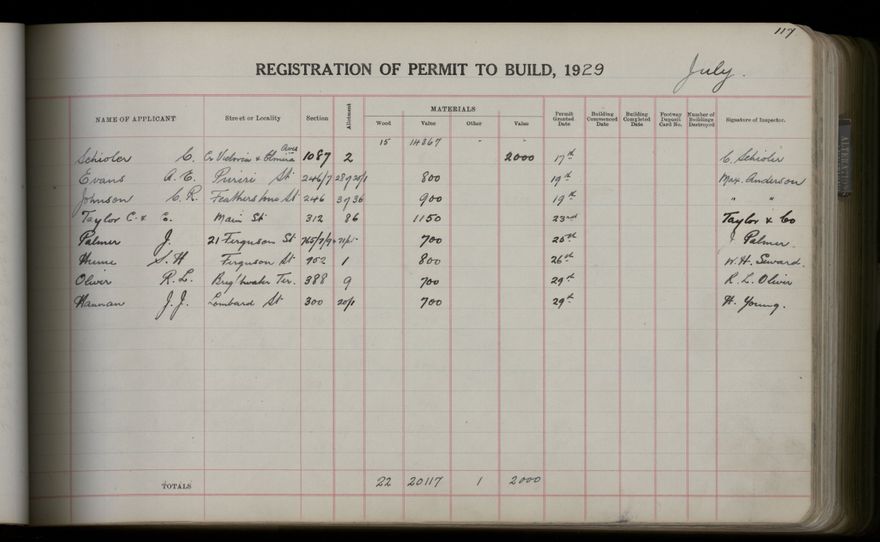 117
REGISTRATION OF PERMIT TO BUILD, 1929 July.
NAME OF APPLICANT Street or Locality Section Allotment MATERIALS Wood Value Other Value Permit Granted Date Building Commenced Date Building Completed Date Footway Deposit Card No. Number of Buildings Destroyed Signature of Inspector.
15 14867 - -
Schioler C. Cr Victoria & Elmira Aves 1087 2 2000 17th C. Schioler
Evans A. E. Puriri St 246/7 800 19th Max. Anderson
Johnson C. R. Featherston St 246 900 19th " "
Taylor C. & E. Main St 312 86 1150 23rd Taylor & Co
Palmer J. 21 Ferguson St 700 25th J Palmer.
Hume S. H Ferguson St 902 1 800 26th W. H. Seward.
Oliver R. L. Brightwater Ter. 388 9 700 29th R. L. Oliver
Hannan J. J. Lombard St 300 20/1 700 29th H. Young.
TOTALS 22 20117 1 2000